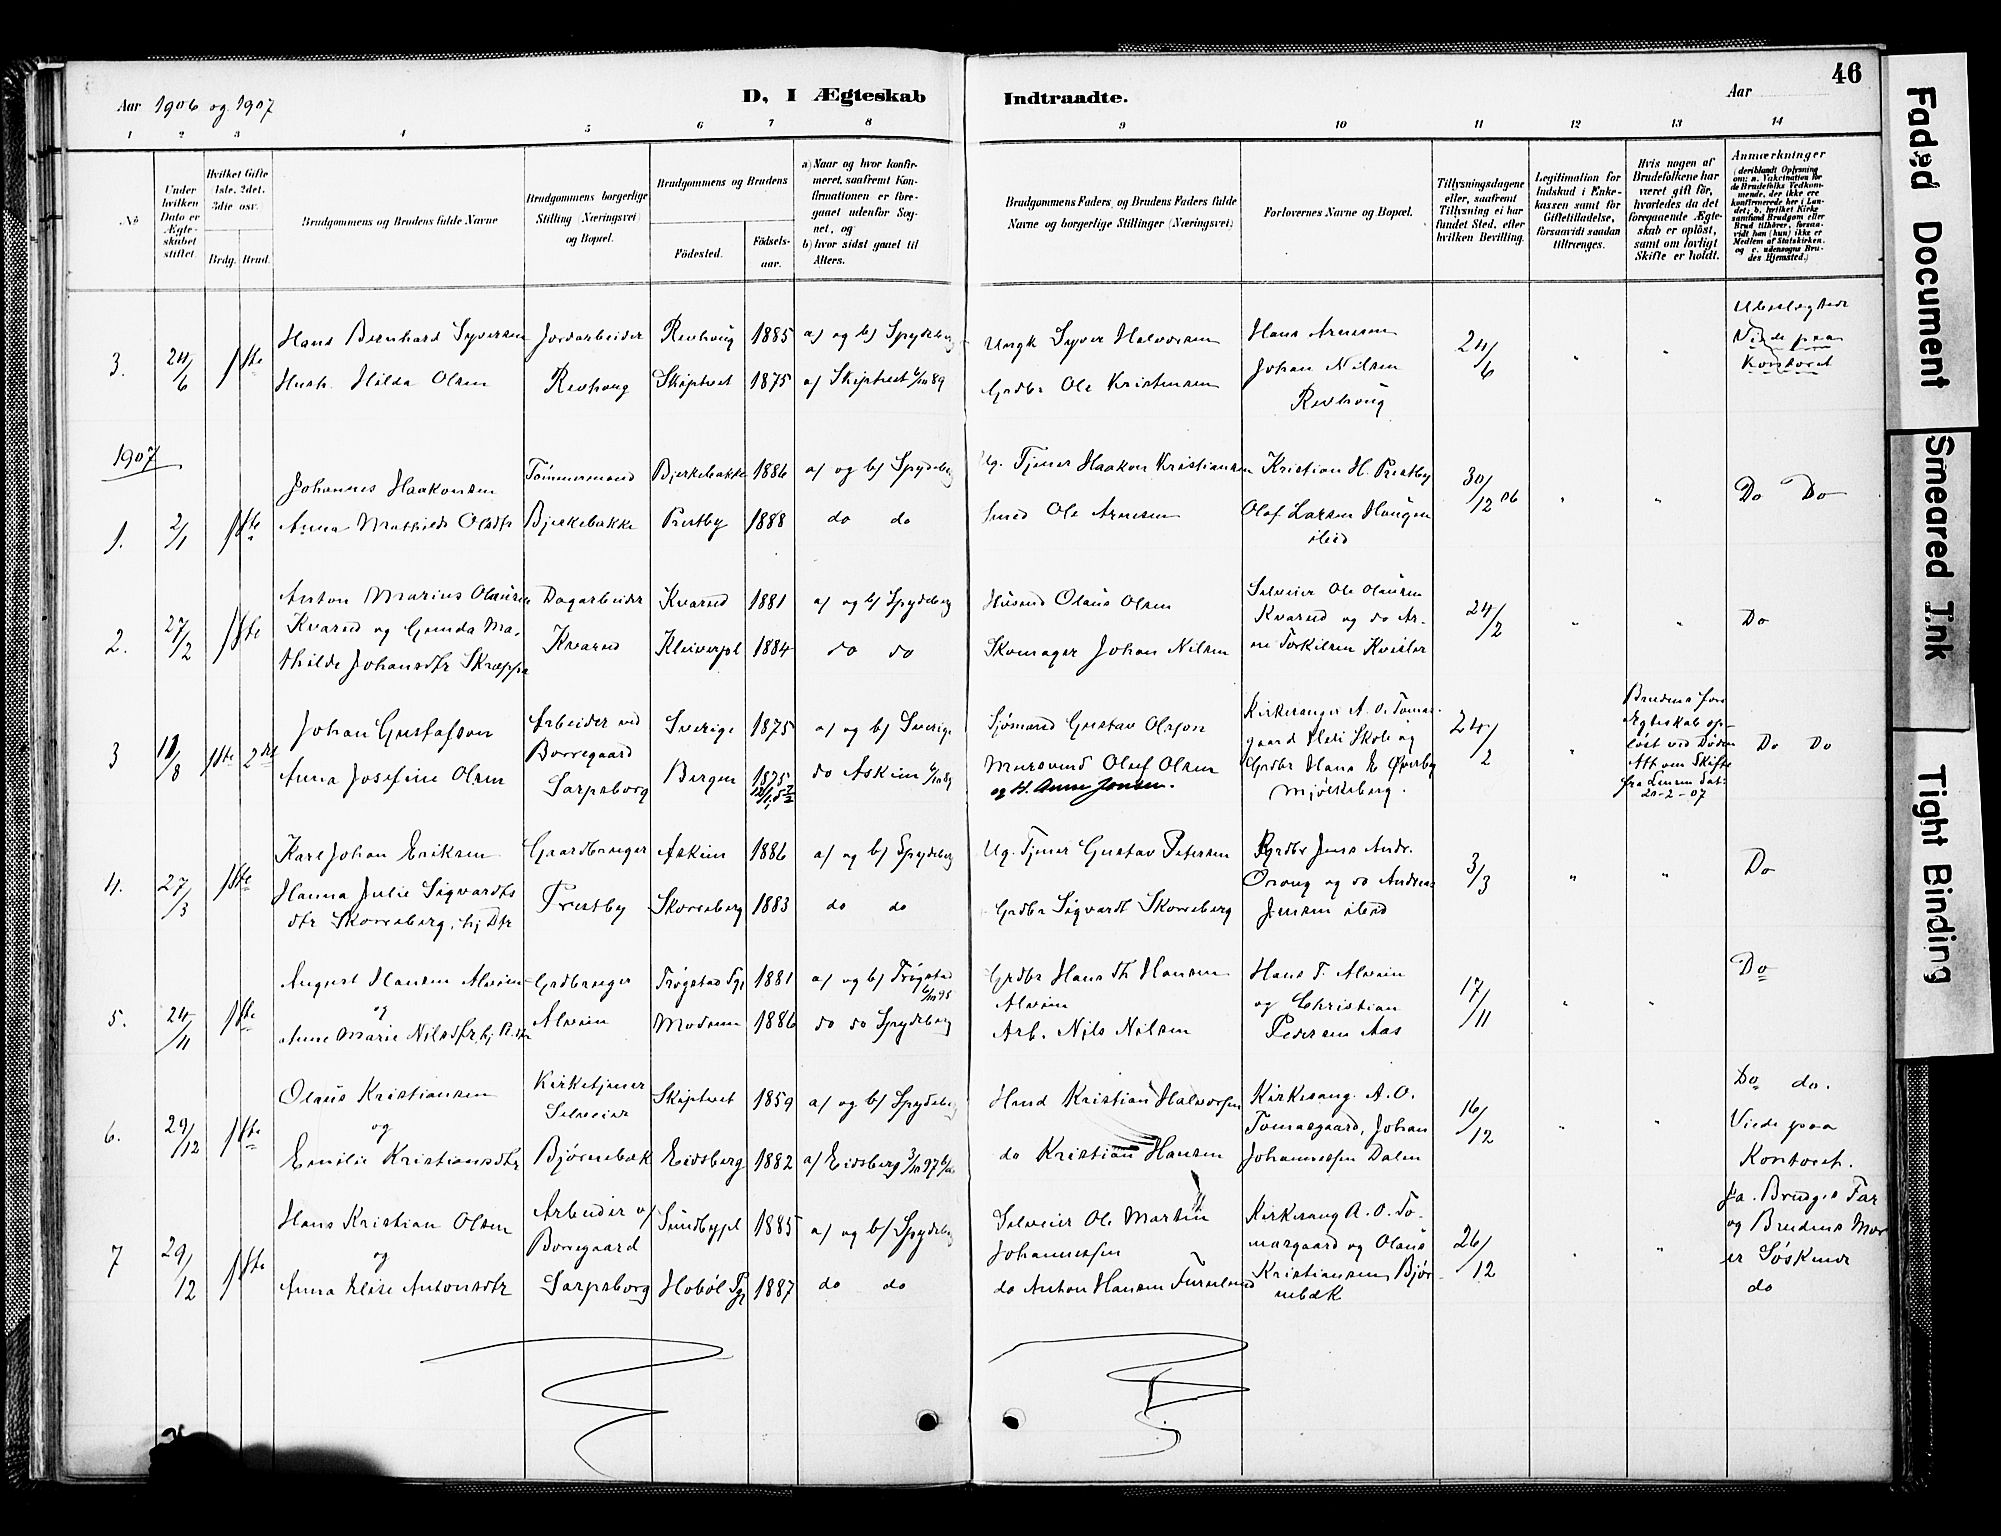 46
Aar 1906 og 1907
D, I Ægteskab Indtraadte.
Aar
1 2 3 4 5 6 7 8 9 10 11 12 13 14
No
Under hvilken Dato er Ægteskabet stiftet.
Hvilket Gifte 1ste. 2det. 3die osv.
Brdg. Brud.
Brudgommens og Brudens fulde Navne
Brudgommens borgerlige Stilling (Næringsvei) og Bopæl.
Brudgommens og Brudens
Födested.
Födselsaar.
a) Naar og hvor konfirmeret, saafremt Konfirmationen er foregaaet udenfor Sognet, og
b) hvor sidst gaaet til Alters.
Brudgommens Faders, og Brudens Faders fulde Navne og borgerlige Stillinger (Næringsvei)
Forlovernes Navne og Bopæl.
Tillysningsdagene eller, saafremt Tillysning ei har fundet Sted, efter hvilken Bevilling.
Legitimation for Indskud i Enkekassen samt for Giftetilladelse, forsaavidt saadan tiltrænges.
Hvis nogen af Brudefolkene har været gift för, hvorledes da det foregaaende Ægteskab er oplöst, samt om lovligt Skifte er holdt.
Anmærkninger
(deriblandt Oplysning om: a. Vakcination for de Brudefolks Vedkommende, der ikke ere konfirmerede her i Landet; b. hvilket Kirkesamfund Brudgom eller Brud tilhører, forsaavidt han (hun) ikke er Medlem af Statskirken, og c. udensogns Brudes Hjemsted.)
3. 24/6 1ste Hans Bernhard Syversen Jordarbeider Revhoug 1885 a/ og b/ Spydeberg Ungk Syver Halvorsen Hans Arnesen 24/6 " " Ubeslægtede
Hush. Hilda Olsen Revhoug Skiptvet 1875 a/ Skiptvet 6/10 89 Grdbr Ole Kristensen Johan Nilsen Viede paa
Revhoug Kontoret
1907
1. 2/1 1ste Johannes Haakonsen Tømmermand Bjerkebakke 1886 a/ og b/ Spydeberg Ug. Tjener Haakon Kristiansen Kristian H. Prestby 30/12 06 " " Do Do
Anna Mathilde Olsdtr Bjerkebakke Prestby 1888 do do Smed Ole Arnesen Olaf Larsen Haugen
ibid
2. 27/2 1ste Anton Marius Olausen Dagarbeider Kvarud 1881 a/ og b/ Spydeberg Husmd Olaus Olsen Selveier Ole Olausen 24/2 " " Do
Kvarud og Gunda Ma- Kvarud Kleiverpl 1884 do do Skomager Johan Nilsen Kvarud og do Ar-
thilde Johansdtr Skræppa ne Torkilsen Kvisler
3 11/8 1ste 2det Johan Gustafson Arbeider ved Sverige 1875 a/ og b/ Sverige Sjømand Gustav Olsson Kirkesanger A. O. Tomas- 24/2 " Brudens før Do Do
Anna Josefine Olsen Borregaard Bergen 1875 do Askim 6/10 89 Mursvend Oluf Olsen gaard Heli Skole og Egteskab op-
Sarpsborg og H. Anne Jonsen. Grdbr Hans E Øverby løst ved Døden
Mjølkeberg. Att om Skifte
21-2-07
4. 27/3 1ste Karl Johan Eriksen Gaardbruger Askim 1886 a/ og b/ Spydeberg Ug. Tjener Gustav Petersen Grdbr Jens Andr. 3/3 " " Do
Hanna Julie Sigvardts Prestby Skovsberg 1883 do do Grdbr Sigvardt Skovsberg og do Andreas
dtr Skovsberg, hj Dtr Jensen ibid
5. 24/11 1ste August Hansen Alveim Grdbruger Trøgstad 1881 a/ og b/ Trøgstad 95 Grdbr Hans Th Hansen Hans T. Alveim 17/11 " " Do
og Alveim og Christian
Anne Marie Nilsdtr Alveim 1886 do do Spydeberg Arb. Nils Nilsen Pedersen Aas
6. 29/12 1ste Olaus Kristiansen Kirketjener Skiptvet 1859 a/ og b/ Spydeberg Hmd Kristian Halvorsen Kirkesang. A. O. 16/12 " " Do do.
og Selveier Tomasgaard, Johan Viede paa
Emilie Kristiansdtr Bjørnebæk Eidsberg 1882 a/ Eidsberg 3/10 97 do Kristian Hansen Johannessen Dalen Kontoret.
7 29/12 1ste Hans Kristian Olsen Arbeider v/ Sundbypl 1885 a/ og b/ Spydeberg Selveier Ole Martin Kirkesang A. O. To- 26/12 " " Ja. Brudgs Far
og Borregaard Johannessen masgaard og Olaus og Brudens Mor
Anna Elise Antonsdtr Sarpsborg Hobøl 1887 do do do Anton Hansen Kristiansen Bjør- er Søskende
nebæk do
Faded Document
Smeared Ink
Tight Binding